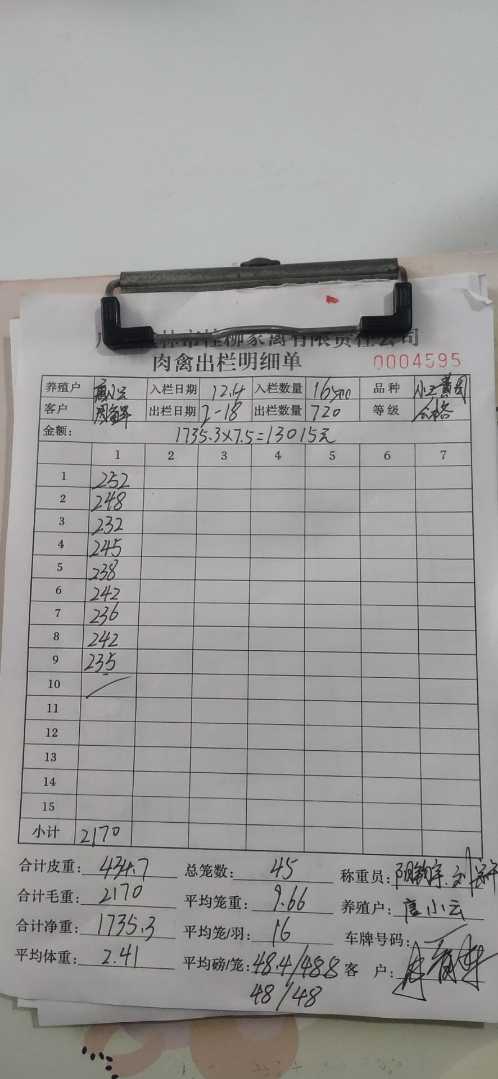 林市桂柳家禽有限责任公司
肉禽出栏明细单
0004595
养殖户 唐小云 入栏日期 12.4 入栏数量 16500 品种
客户 出栏日期 2-18 出栏数量 720 等级 合格
金额: 1735.3×7.5=13015元
1 2 3 4 5 6 7
1 252
2 248
3 232
4 245
5 238
6 242
7 236
8 242
9 235
10
11
12
13
14
15
小计 2170
合计皮重: 434.7 总笼数: 45 称重员:
合计毛重: 2170 平均笼重: 9.66 养殖户: 唐小云
合计净重: 1735.3 平均笼/羽: 16 车牌号码:
平均体重: 2.41 平均磅/笼: 48.4/48.8 客 户:
48/48